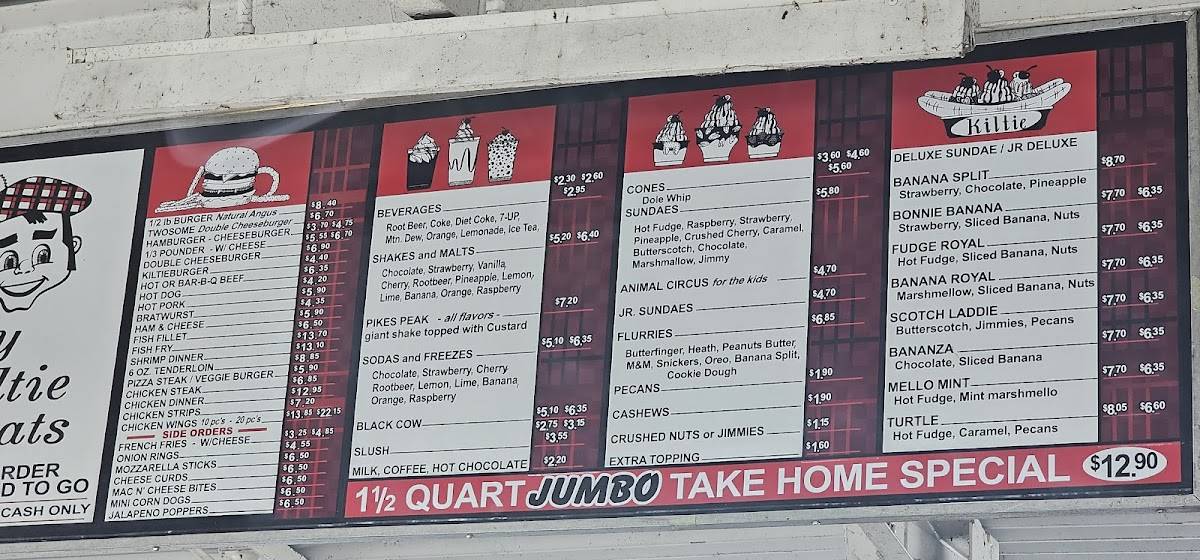 y
ltie
ats
RDER
D TO GO
CASH ONLY
1/2 lb BURGER Natural Angus $8.40
TWOSOME Double Cheeseburger $6.70
HAMBURGER - CHEESEBURGER $3.70 $4.75
1/3 POUNDER - W/ CHEESE $5.55 $6.70
DOUBLE CHEESEBURGER $6.90
KILTIEBURGER $4.40
HOT OR BAR-B-Q BEEF $6.35
HOT DOG $4.20
HOT PORK $5.90
BRATWURST $4.35
HAM & CHEESE $5.90
FISH FILLET $6.50
FISH FRY $13.70
SHRIMP DINNER $13.10
6 OZ. TENDERLOIN $8.85
PIZZA STEAK / VEGGIE BURGER $5.90
CHICKEN STEAK $6.85
CHICKEN DINNER $12.95
CHICKEN STRIPS $7.20
CHICKEN WINGS 10 pc's - 20 pc's $13.85 $22.15
SIDE ORDERS
FRENCH FRIES - W/CHEESE $3.25 $4.85
ONION RINGS $4.55
MOZZARELLA STICKS $6.50
CHEESE CURDS $6.50
MAC N' CHEESE BITES $6.50
MINI CORN DOGS $6.50
JALAPENO POPPERS $6.50
BEVERAGES $2.30 $2.60
$2.95
Root Beer, Coke, Diet Coke, 7-UP,
Mtn. Dew, Orange, Lemonade, Ice Tea,
SHAKES and MALTS $5.20 $6.40
Chocolate, Strawberry, Vanilla,
Cherry, Rootbeer, Pineapple, Lemon,
Lime, Banana, Orange, Raspberry
PIKES PEAK - all flavors - $7.20
giant shake topped with Custard
SODAS and FREEZES $5.10 $6.35
Chocolate, Strawberry, Cherry
Rootbeer, Lemon, Lime, Banana,
Orange, Raspberry
BLACK COW $5.10 $6.35
SLUSH $2.75 $3.15
$3.55
MILK, COFFEE, HOT CHOCOLATE $2.20
CONES $3.60 $4.60
$5.60
Dole Whip
SUNDAES $5.80
Hot Fudge, Raspberry, Strawberry,
Pineapple, Crushed Cherry, Caramel,
Butterscotch, Chocolate,
Marshmallow, Jimmy
ANIMAL CIRCUS for the kids $4.70
JR. SUNDAES $4.70
FLURRIES $6.85
Butterfinger, Heath, Peanuts Butter,
M&M, Snickers, Oreo, Banana Split,
Cookie Dough
PECANS $1.90
CASHEWS $1.90
CRUSHED NUTS or JIMMIES $1.15
EXTRA TOPPING $1.60
Kiltie
DELUXE SUNDAE / JR DELUXE
BANANA SPLIT $8.70
Strawberry, Chocolate, Pineapple
BONNIE BANANA $7.70 $6.35
Strawberry, Sliced Banana, Nuts
FUDGE ROYAL $7.70 $6.35
Hot Fudge, Sliced Banana, Nuts
BANANA ROYAL $7.70 $6.35
Marshmellow, Sliced Banana, Nuts
SCOTCH LADDIE $7.70 $6.35
Butterscotch, Jimmies, Pecans
BANANZA $7.70 $6.35
Chocolate, Sliced Banana
MELLO MINT $7.70 $6.35
Hot Fudge, Mint marshmello
TURTLE $8.05 $6.60
Hot Fudge, Caramel, Pecans
1 1/2 QUART JUMBO TAKE HOME SPECIAL $12.90